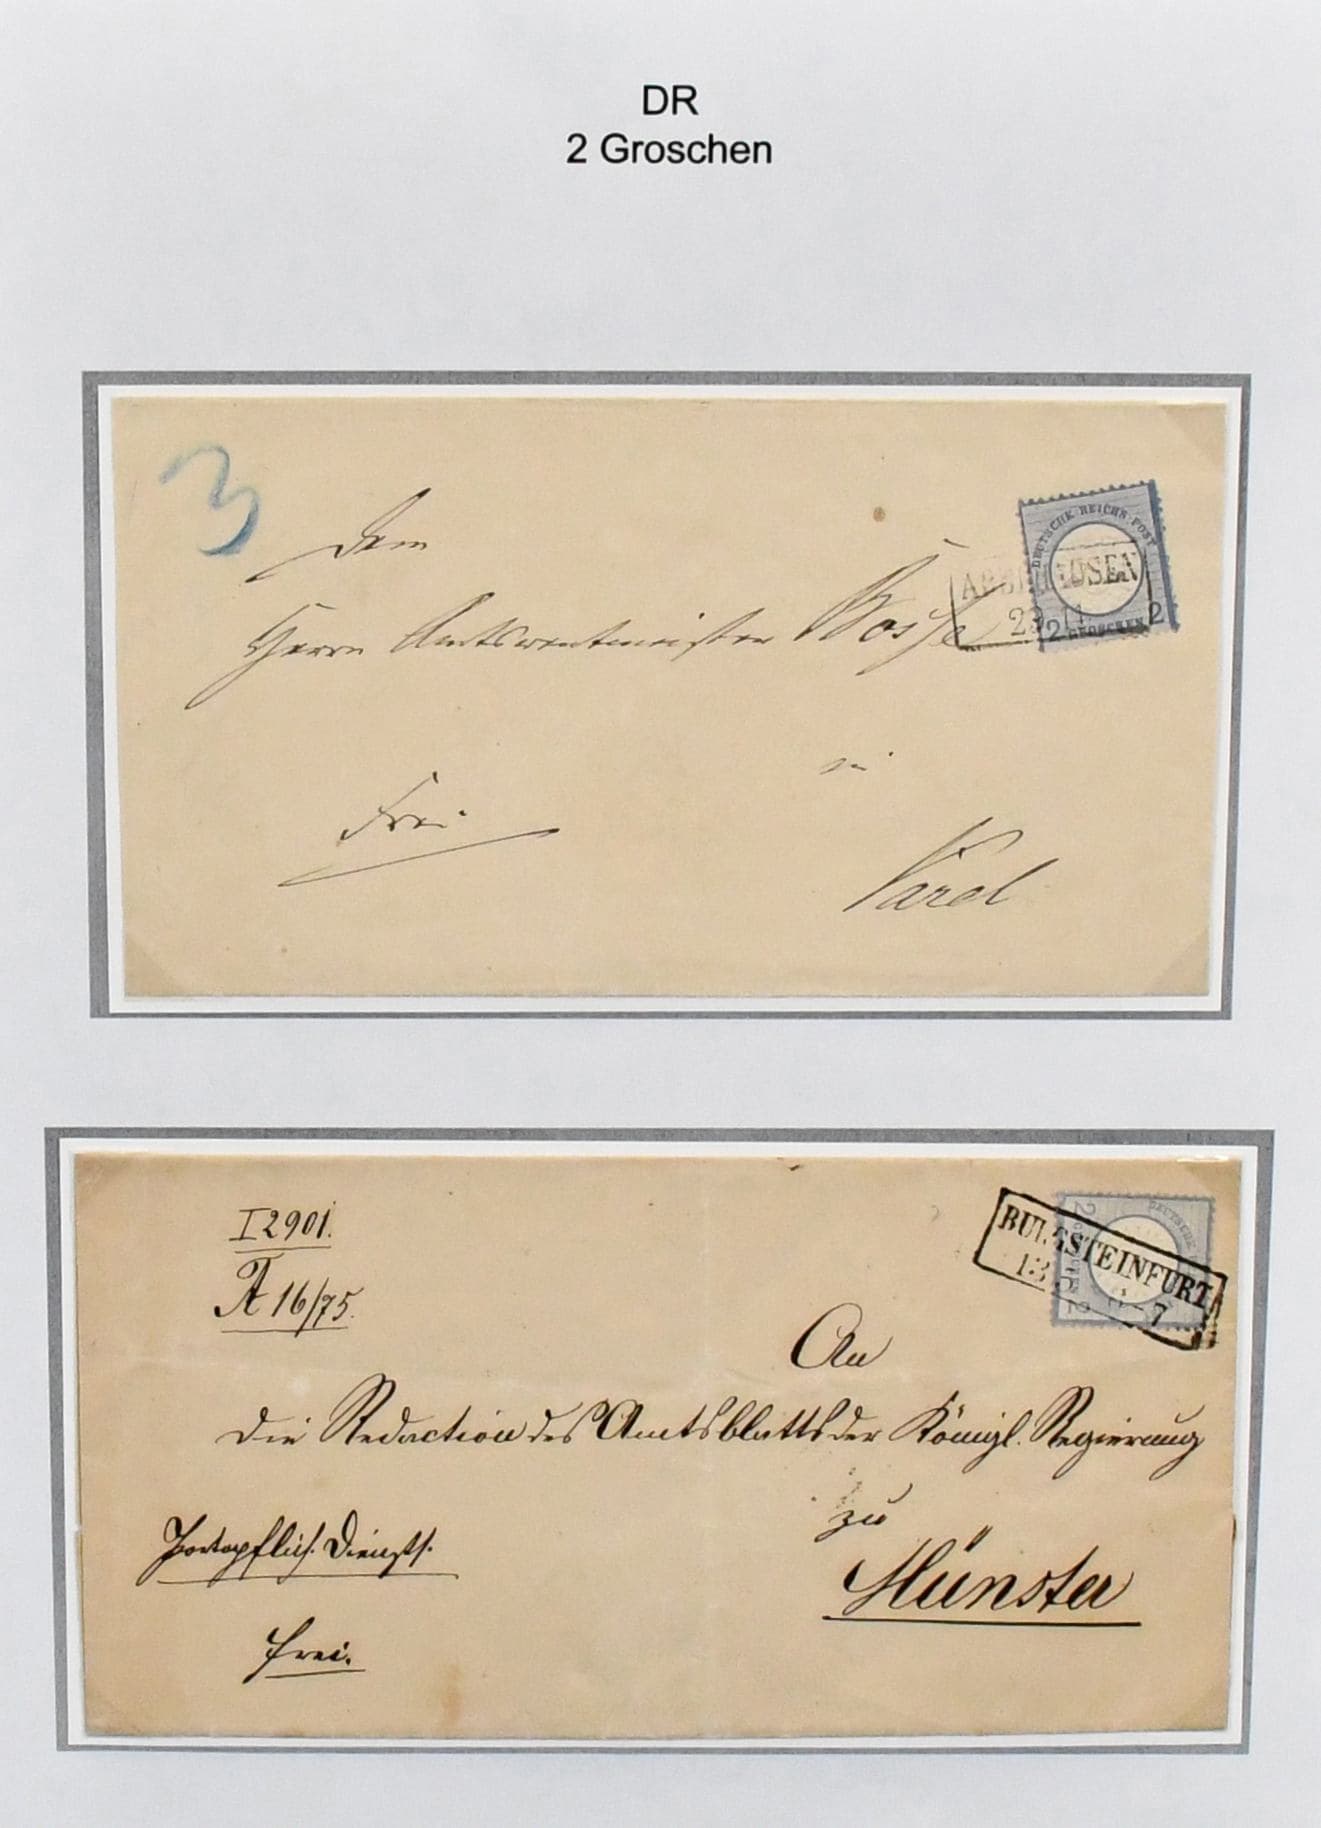 DR
2 Groschen
3
Dem
Herrn Amtsrentmeister Bosse
in
Frei
Varel
DEUTSCHE REICHS-POST
2 GROSCHEN 2
29 11
I 2901.
A 16/75.
BURGSTEINFURT
13 7
DEUTSCHE
2
2
An
die Redaction des Amtsblatts der Königl. Regierung
zu
Münster
Portopflich. Dienests.
frei.